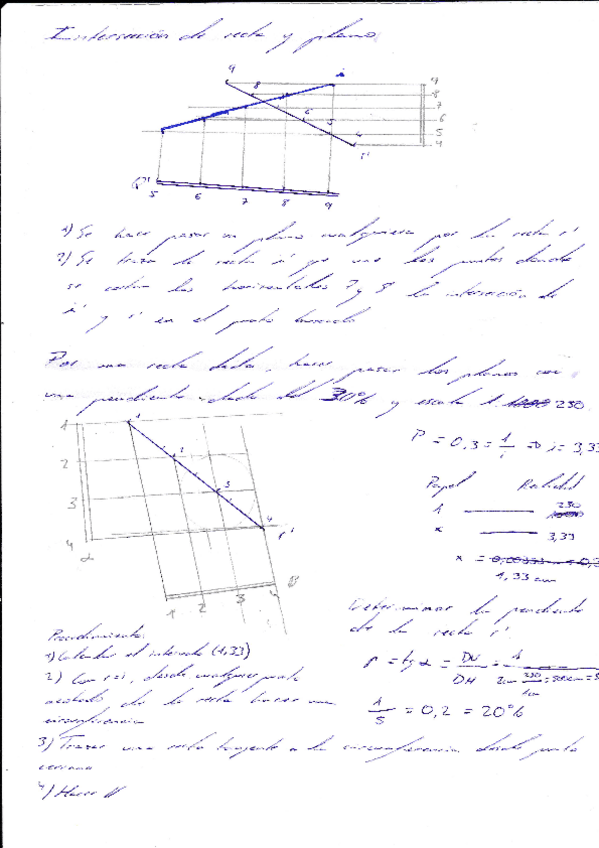 Intersección de recta y plano
9 8 i 9
8
7
6 6
5 5
4 r' 4
5 6 7 8 9
1) Se hace pasar un plano cualquiera por la recta r'
2) Se traza la recta i' que une los puntos donde
se cortan las horizontales 7 y 8 la intersección de
i' y r' en el punto buscado
Por una recta dada, hacer pasar dos planos con
una pendiente dada del 30% y escala 1: 250
P = 0,3 = 1/i => i = 3,33
1 1
2 2
3 3
4 4 r'
α
1 2 3 4 β
Papel Realidad
1 — 250
x — 3,33
x =
1,33 cm
Determinar la pendiente
de la recta r'
Procedimiento:
1) Calcular el intervalo (1,33)
2) Con r=i, desde cualquier punto
acotado de la recta hacer una
circunferencia
3) Trazar una recta tangente a la circunferencia desde punto
cercano
4) Hacer //
P = tg α = DV/DH = 1
1/5 = 0,2 = 20%